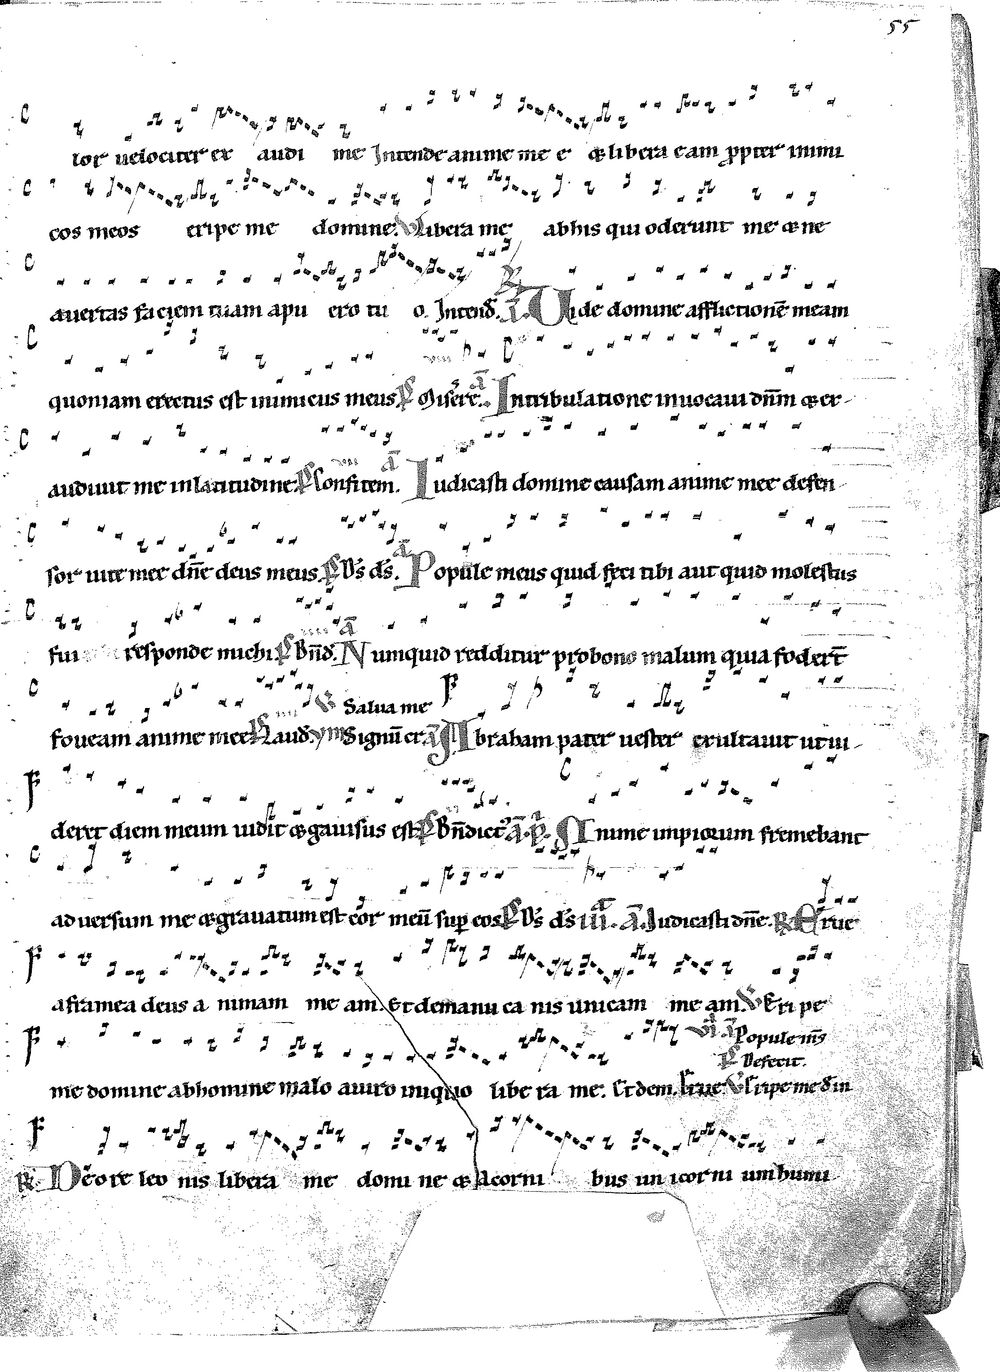 55
lor uelociter ex audi me Intende anime me e & libera eam ꝓpter inimi
cos meos eripe me domine. V Libera me abhis qui oderunt me & ne
auertas faciem tuam apu ero tu o. Intend. R̃ ã. Uide domine afflictionē meam
quoniam erectus est inimicus meus. P̃ Miserē. ã In tribulatione inuocaui dn̄m & ex-
audiuit me in latitudine. P̃ Confitem. ã Iudicasti domine causam anime mee defen-
sor uite mee dn̄e deus meus. P̃ D̄s d̄s. ã Popule meus quid feci tibi aut quid molestus
fui responde michi. P̃ Bn̄d. ã Numquid redditur pro bono malum quia foder̄t
foueam anime mee. Laud. ym̄ Signū cr. V Salua me ã Abraham pater uester exultauit ut ui-
deret diem meum uidit & gauisus est. P̃ Bn̄dict᷒ ã. p̄. Anime impiorum fremebant
aduersum me & grauatum est cor meū suꝑ eos. P̃ D̄s d̄s ã. Iudicasti dn̄e. R̃ Erue
a framea deus a nimam me am. Et de manu ca nis unicam me am. V Eripe
Popule m̄s
P̃ Defecit.
me domine ab homine malo a uiro iniquo libe ra me. Et dem. Erue V Eripe me d̄ in
R̃. De ore leo nis libera me domi ne & a corni bus un icorni um humi